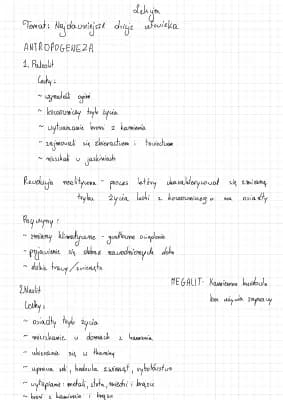 Temat: Najdawniejsze dzieje człowieka
ANTROPOGENEZA
1. Paleolit
Cechy:
~ wynaleźli ogień
~ koczowniczy tryb życia
~ wytwarzanie broni z kamienia
~ zajmowali się zbieractwem i łowiectwem
~ mieszkali w jaskiniach
Rewolucja neolityczna - proces który charakteryzował się zmianą
trybu życia ludzi z koczowniczego na osiadły
Przyczyny:
~ zmiany klimatyczne - gwałtowne ocieplenie
~ pojawienie się dobrze nawodnionych
~ dzikie trawy/zwierzęta
MEGALIT - Kamienna budowla
bez użycia zaprawy
2. Neolit
Cechy:
~ osiadły tryb życia
~ mieszkanie w domach z kamienia
~ ubieranie się w tkaniny
~ uprawa roli, hodowla zwierząt, rybołówstwo
~ wytapianie: metali, złota, miedzi i brązu
~ broń z kamienia i brązu